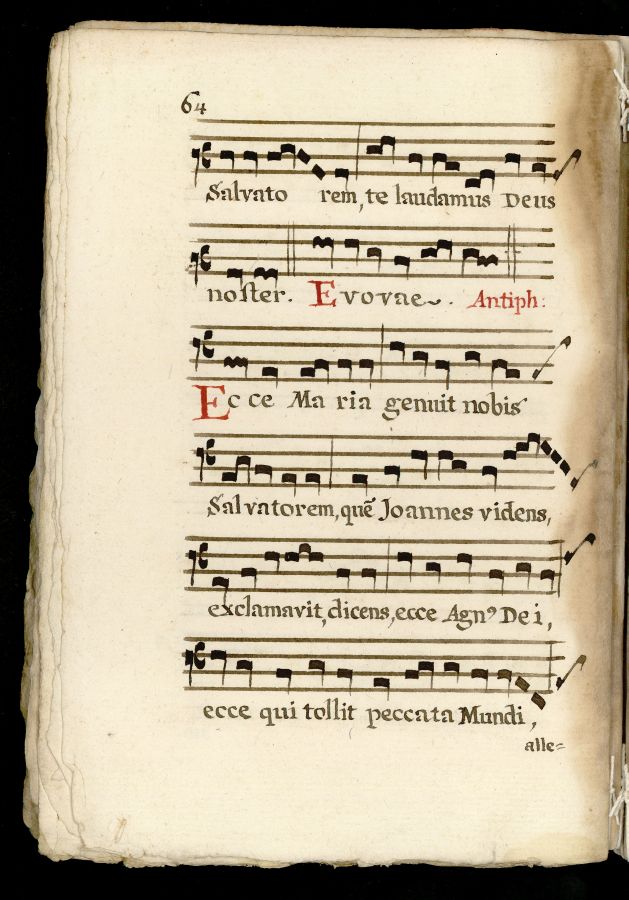 64
Salvato rem, te laudamus Deus
noster. Evovae. Antiph:
Ecce Maria genuit nobis
Salvatorem, quē Joannes videns,
exclamavit, dicens, ecce Agnꝰ Dei,
ecce qui tollit peccata Mundi,
alle=